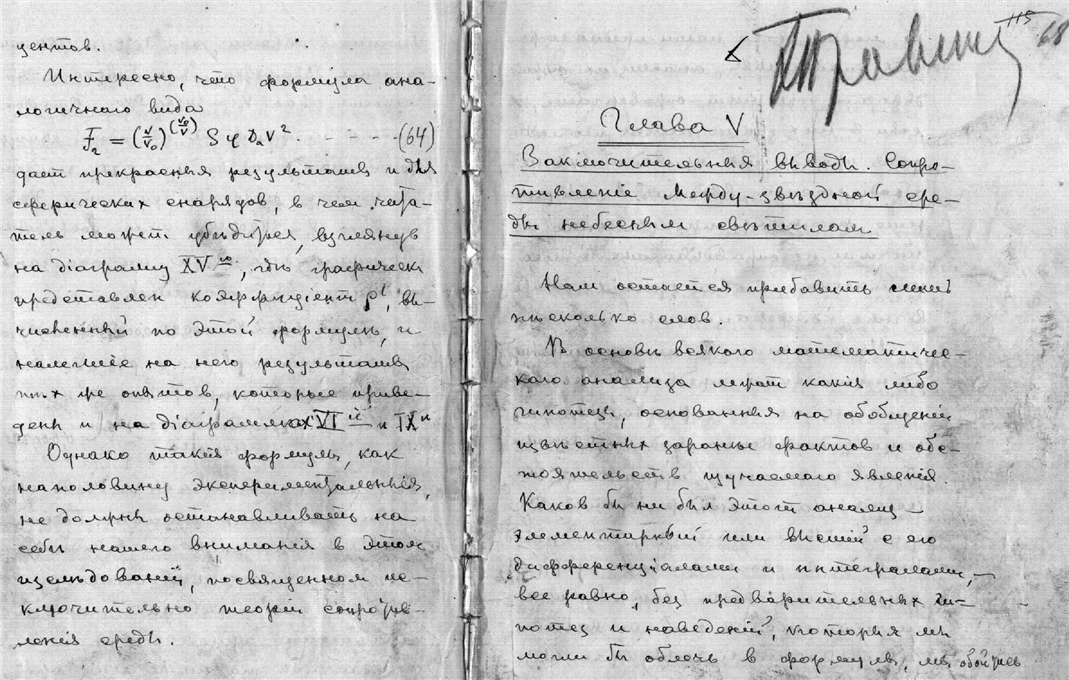 центов.
Интересно, что формула ана-
логичного вида
F₂ = (V/V₀)^(V₀/V) S φ Dₐ V² - - - (64)
дает прекрасныя результаты и для
сферических снарядов, в чем чита-
тель может убедиться, взглянув
на діаграмму XV ую, гдѣ графически
представлен коэффиціент ρ', вы-
численный по этой формулѣ, и
налегшіе на него результаты
тѣх же опытов, которые приве-
дены и на діаграммах VI й и IX й
Однако такія формулы, как
наполовину экспериментальныя,
не должны останавливать на
себѣ нашего вниманія в этом
изслѣдованіи, посвященном ис-
ключительно теоріи сопротив-
ленія среды.
115
68
Глава V
Заключительныя выводы. Сопро-
тивленіе Между-звѣздной сре-
ды небесным свѣтилам.
Нам остается прибавить лишь
нѣсколько слов.
В основѣ всякого математичес-
каго анализа лежат какія либо
гипотезы, основанныя на обобщеніи
извѣстных заранѣе фактов и обс-
тоятельств изучаемого явленія.
Каков бы ни был этот анализ –
элементарный или высшій с его
дифференціалами и интегралами, –
все равно, без предварительных ги-
потез и наведеній, которыя мы
могли бы облечь в формулы, мы обойтись